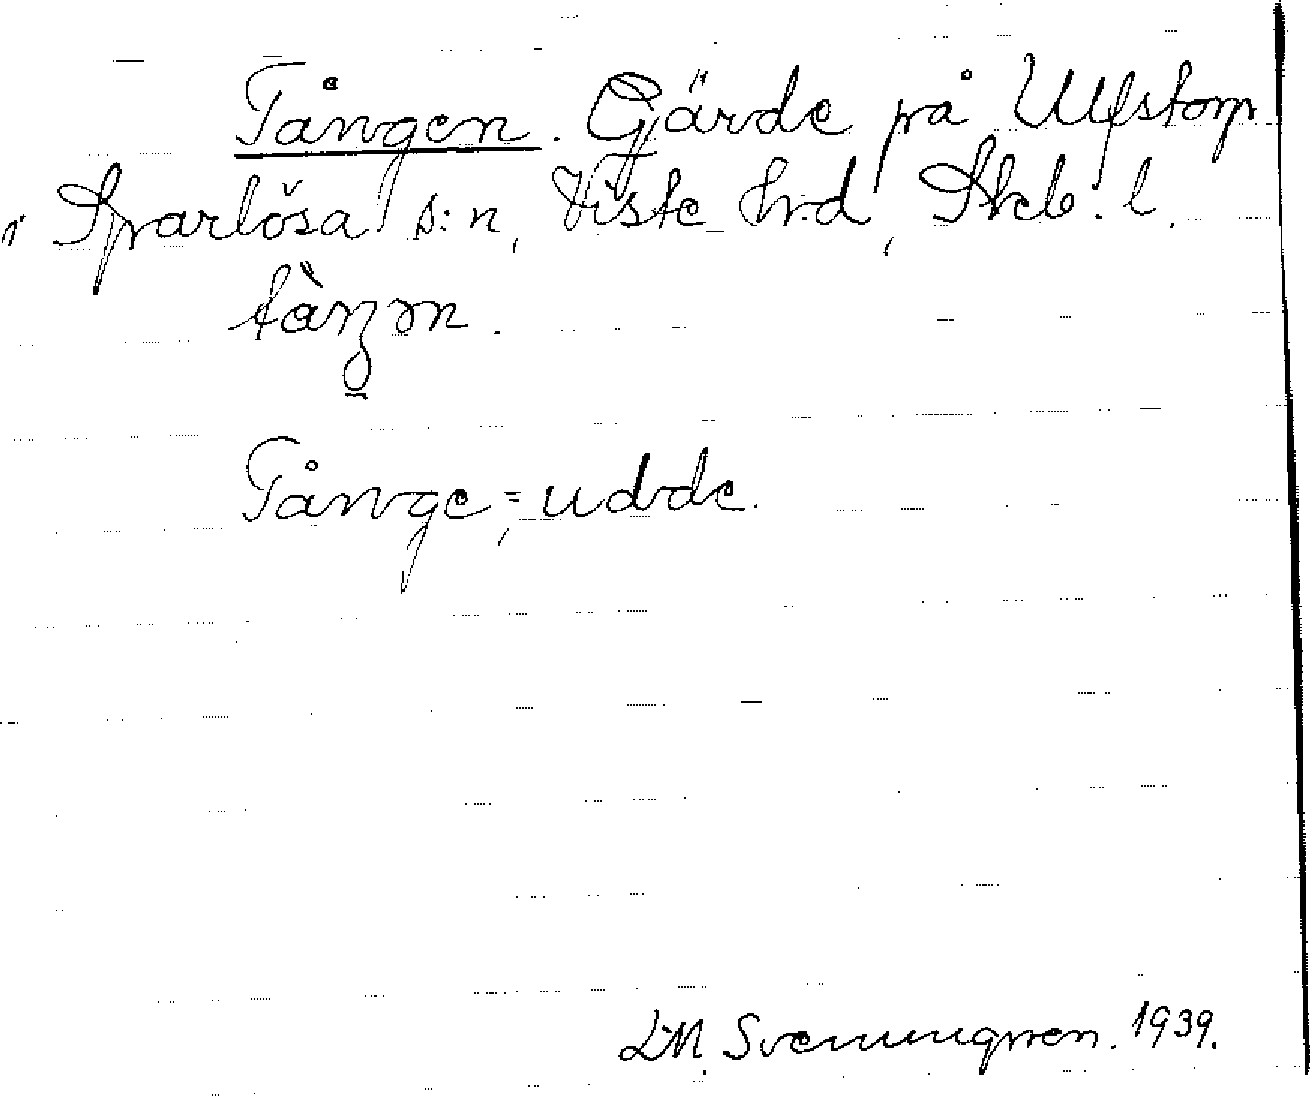 Tången. Gärde på Ulfstorp
i Sparlösa s:n, Viste h:d, Skb. l.
Tånge = udde.
D.M. Svenungsson. 1939.